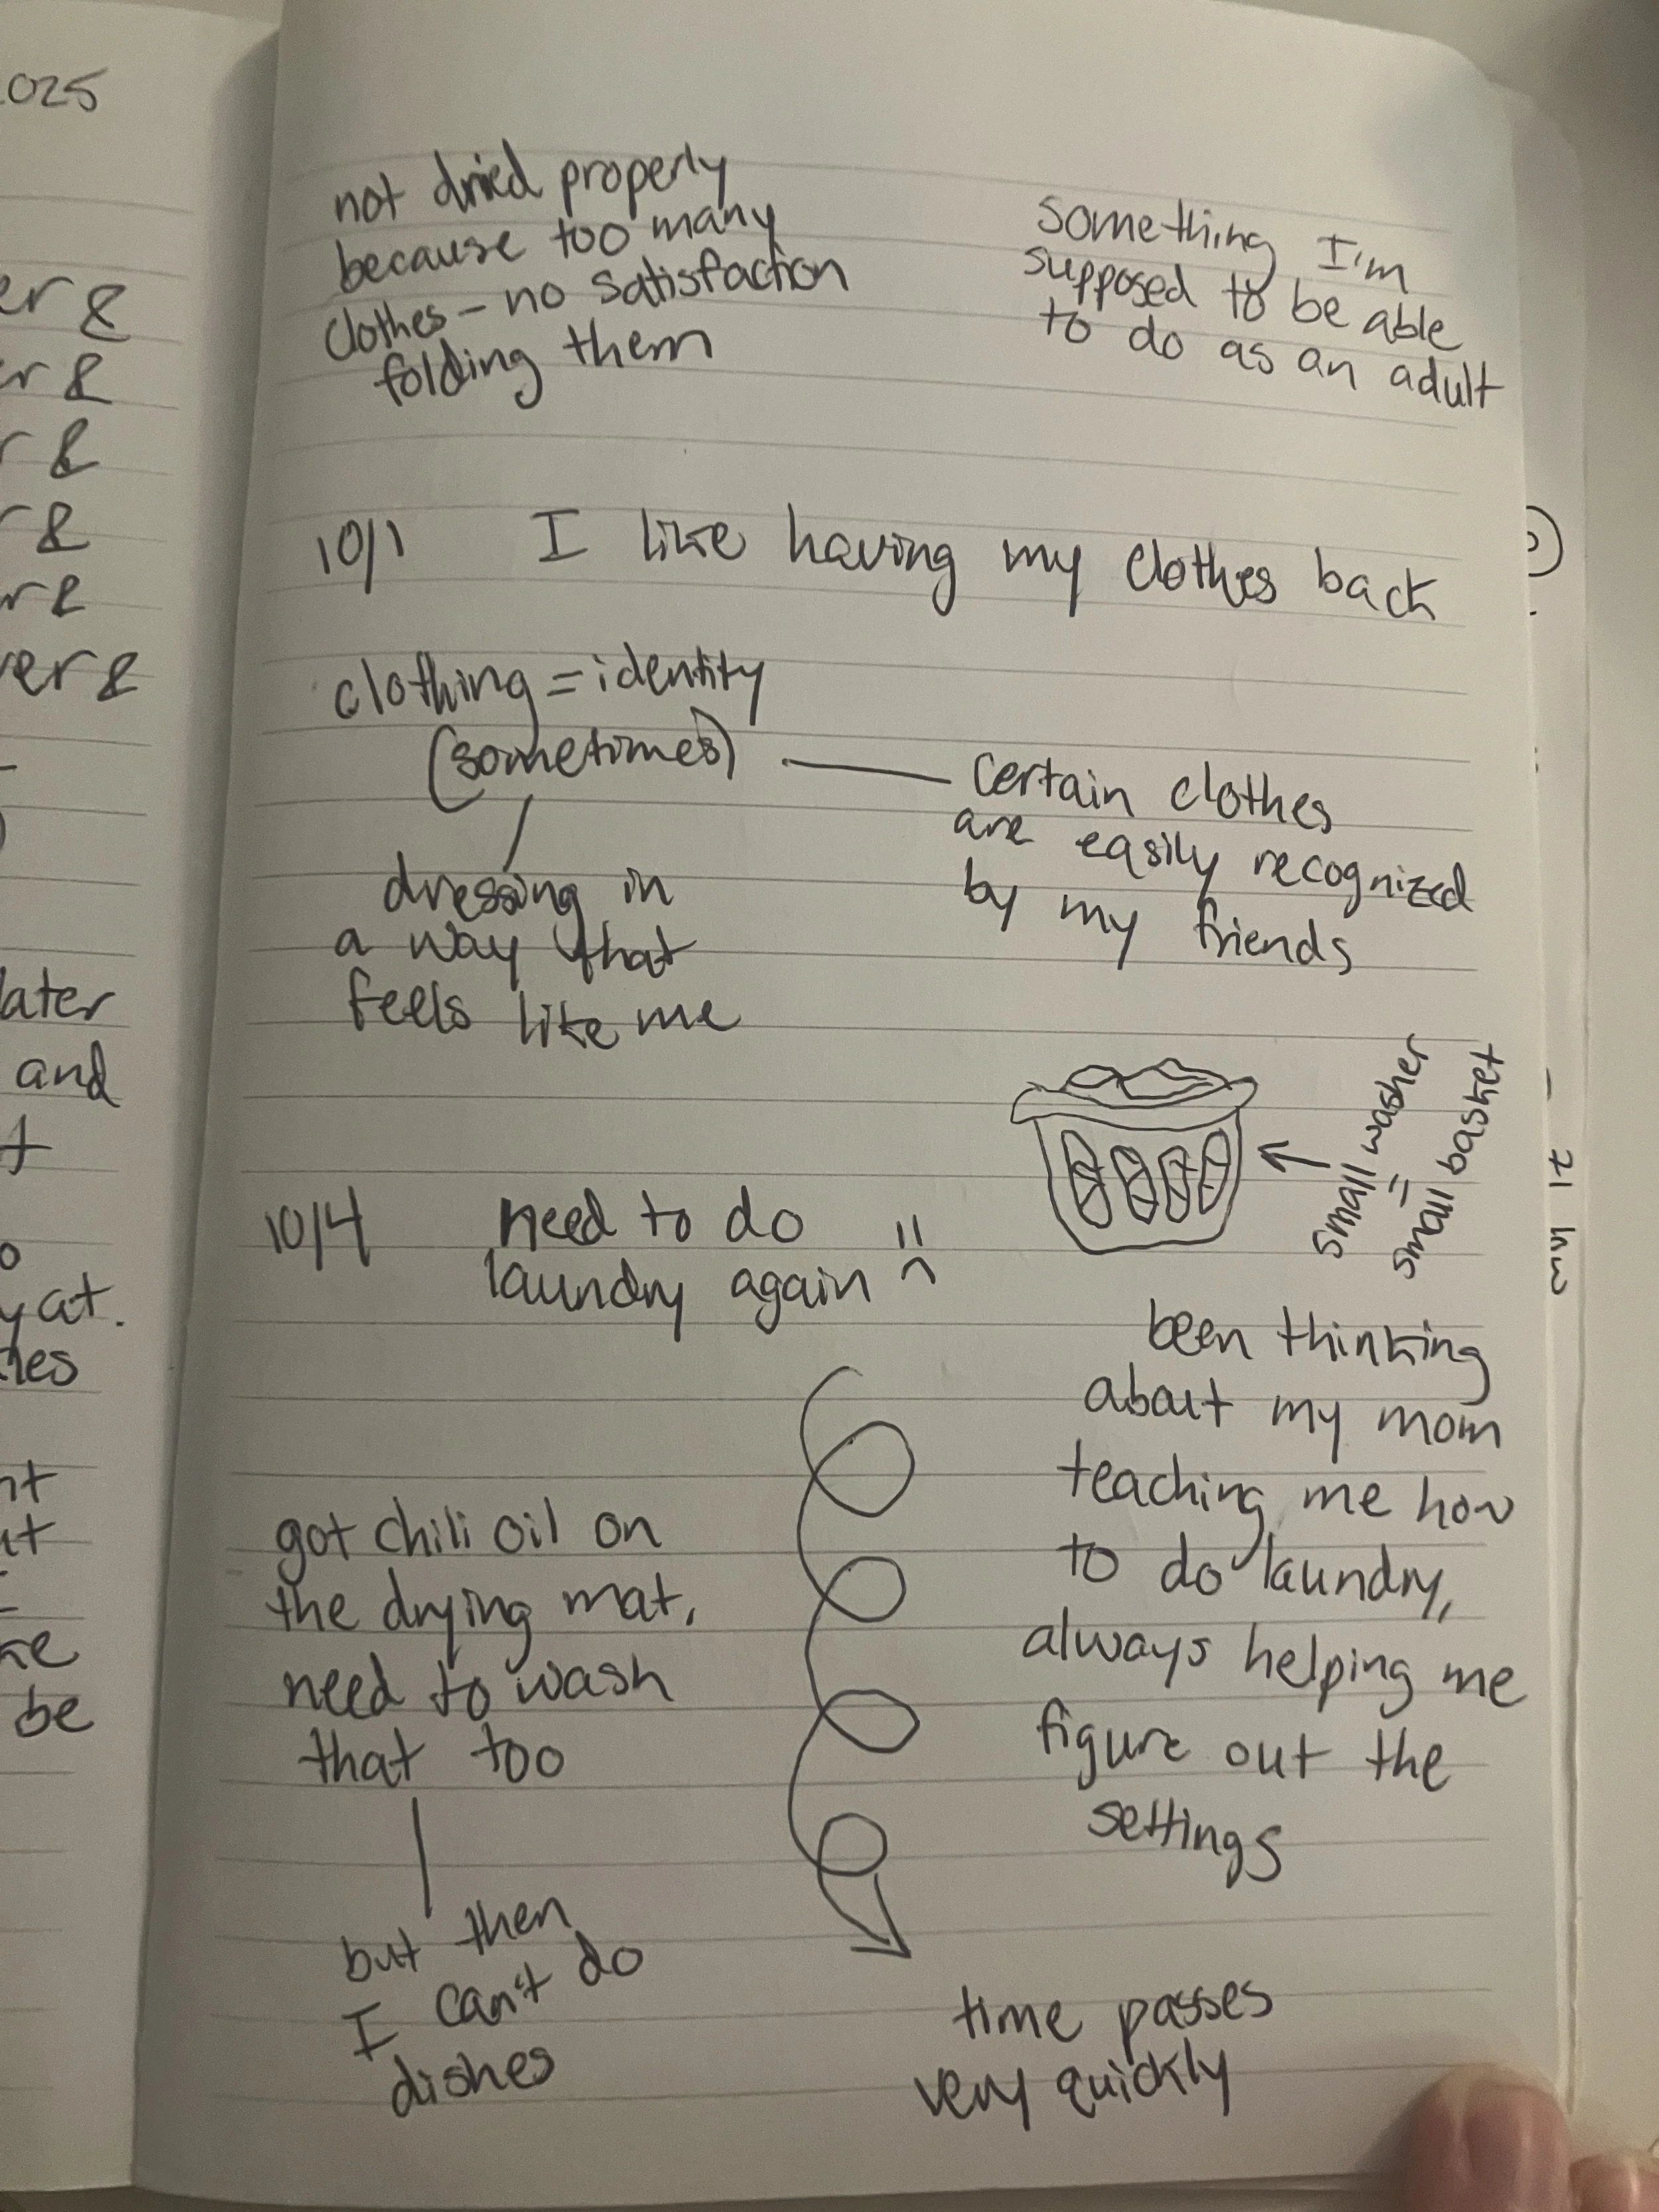 025
er &
er &
r &
r &
r &
ver &
later
and
t
o
y at.
nt
be
not dried properly
because too many
clothes – no satisfaction
folding them
something I'm
supposed to be able
to do as an adult
10/1 I like having my clothes back
clothing = identity
(sometimes)
certain clothes
are easily recognized
by my friends
dressing in
a way that
feels like me
small washer
=
small basket
10/4 need to do
laundry again
been thinking
about my mom
teaching me how
to do laundry,
always helping me
figure out the
settings
got chili oil on
the drying mat,
need to wash
that too
but then
I can't do
dishes
time passes
very quickly